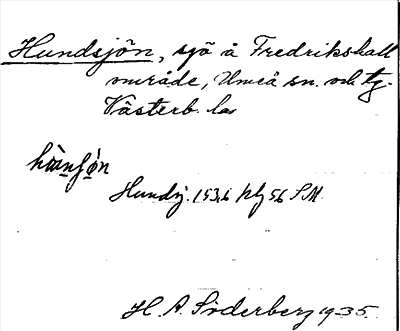 Hundsjön, sjö å Fredrikshall
område, Umeå sn. och tg.
Västerb. la
Hundsj. 1536 blg 56 SM.
H. A. Söderberg 1935.